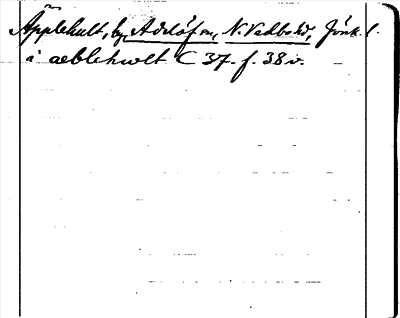 Äpplehult, by, Adelöf sn, N. Vedbo hd, Jönk. l.
i aeblehwlt C 37. f. 38 v.